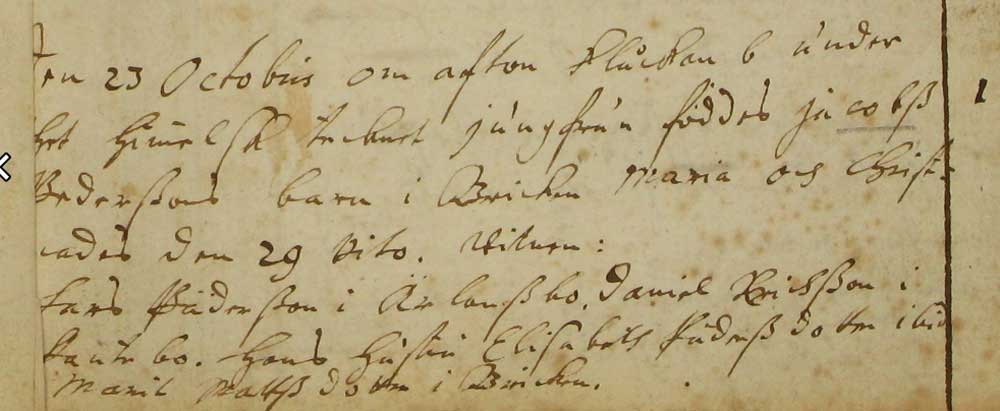 den 23 Octobris om afton Kluckan 6 under
het himmelsk teknet jungfrun föddes jacobß
Pederßons barn i Bricken Maria och Christ-
nades den 29 Dito. Witnen:
Lars Päderßon i Daniel Erichßon i
bo. hans hustru Elisabeth Päderßdotter ibid
Marit Matßdotter i Bricken.
1